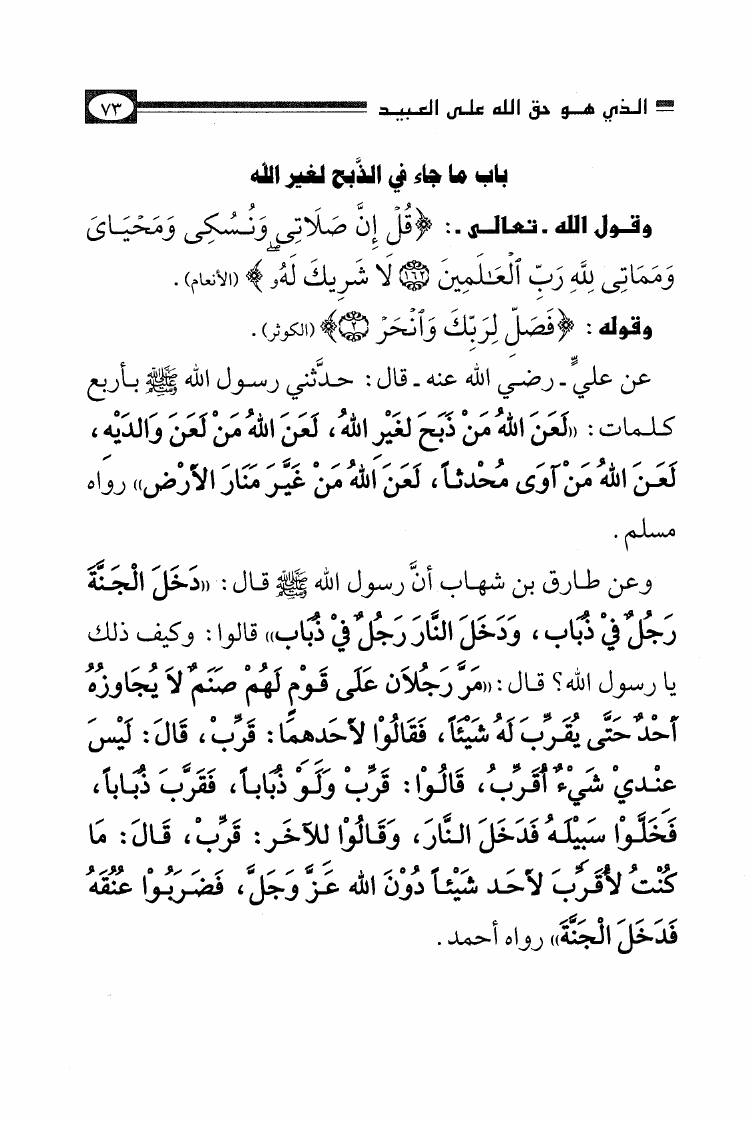 الذي هو حق الله على العبيد ٧٣
باب ما جاء في الذَّبح لغير الله
وقول الله ـ تعالى ـ: ﴿قُلْ إِنَّ صَلَاتِى وَنُسُكِى وَمَحْيَاىَ
وَمَمَاتِى لِلَّهِ رَبِّ ٱلْعَـٰلَمِينَ ١٦٢ لَا شَرِيكَ لَهُۥ﴾ (الأنعام).
وقوله: ﴿فَصَلِّ لِرَبِّكَ وَٱنْحَرْ ٢﴾ (الكوثر).
عن عليٍّ ـ رضي الله عنه ـ قال: حدَّثني رسول الله ﷺ بأربع
كلمات: «لَعَنَ اللهُ مَنْ ذَبَحَ لغَيْرِ اللهُ، لَعَنَ اللهُ مَنْ لَعَنَ وَالدَيْهِ،
لَعَنَ اللهُ مَنْ آوَى مُحْدثاً، لَعَنَ اللهُ مَنْ غَيَّرَ مَنَارَ الأرْض» رواه
مسلم.
وعن طارق بن شهاب أنَّ رسول الله ﷺ قال: «دَخَلَ الْجَنَّةَ
رَجُلٌ فيْ ذُبَاب، وَدَخَلَ النَّارَ رَجُلٌ فيْ ذُبَاب» قالوا: وكيف ذلك
يا رسول الله؟ قال: «مَرَّ رَجُلاَن عَلَى قَوْمٍ لَهُمْ صَنَمٌ لاَ يُجَاوزُهُ
أحْدٌ حَتَّى يُقَرِّبَ لَهُ شَيْئاً، فَقَالُوْا لأحَدهمَا: قَرِّبْ، قَالَ: لَيْسَ
عنْديْ شَيْءٌ أُقَرِّبُ، قَالُوْا: قَرِّبْ وَلَوْ ذُبَاباً، فَقَرَّبَ ذُبَاباً،
فَخَلَّوْا سَبِيْلَهُ فَدَخَلَ النَّارَ، وَقَالُوْا للآخَر: قَرِّبْ، قَالَ: مَا
كُنْتُ لأُقَرِّبَ لأحَد شَيْئاً دُوْنَ الله عَزَّ وَجَلَّ، فَضَرَبُوْا عُنُقَهُ
فَدَخَلَ الْجَنَّةَ» رواه أحمد.